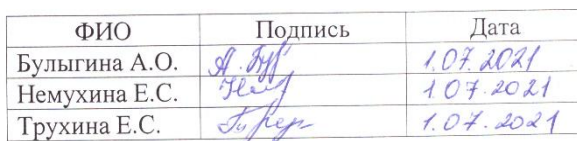 ФИО Подпись Дата
Булыгина А.О. 1.07.2021
Немухина Е.С. 1.07.2021
Трухина Е.С. 1.07.2021